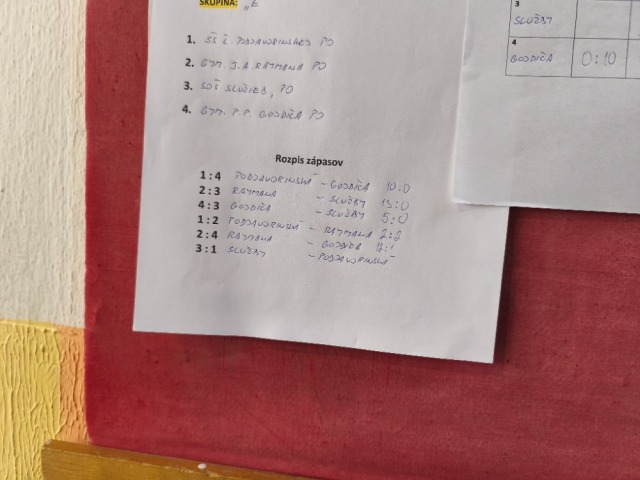 SKUPINA: „E
1. SŠ Ľ. PODJAVORINSKEJ PO
2. GYM. J. A RAYMANA PO
3. SOŠ SLUŽIEB, PO
4. GYM. P. P. GOJDIČA PO
Rozpis zápasov
1 : 4 PODJAVORINSKÁ - GOJDIČA 10:0
2 : 3 RAYMANA - SLUŽBY 13:0
4 : 3 GOJDIČA - SLUŽBY 5:0
1 : 2 PODJAVORINSKÁ - RAYMANA 2:2
2 : 4 RAYMANA - GOJDIČA
3 : 1 SLUŽBY - PODJAVORINSKÁ
3
SLUŽBY
4
GOJDIČA 0:10